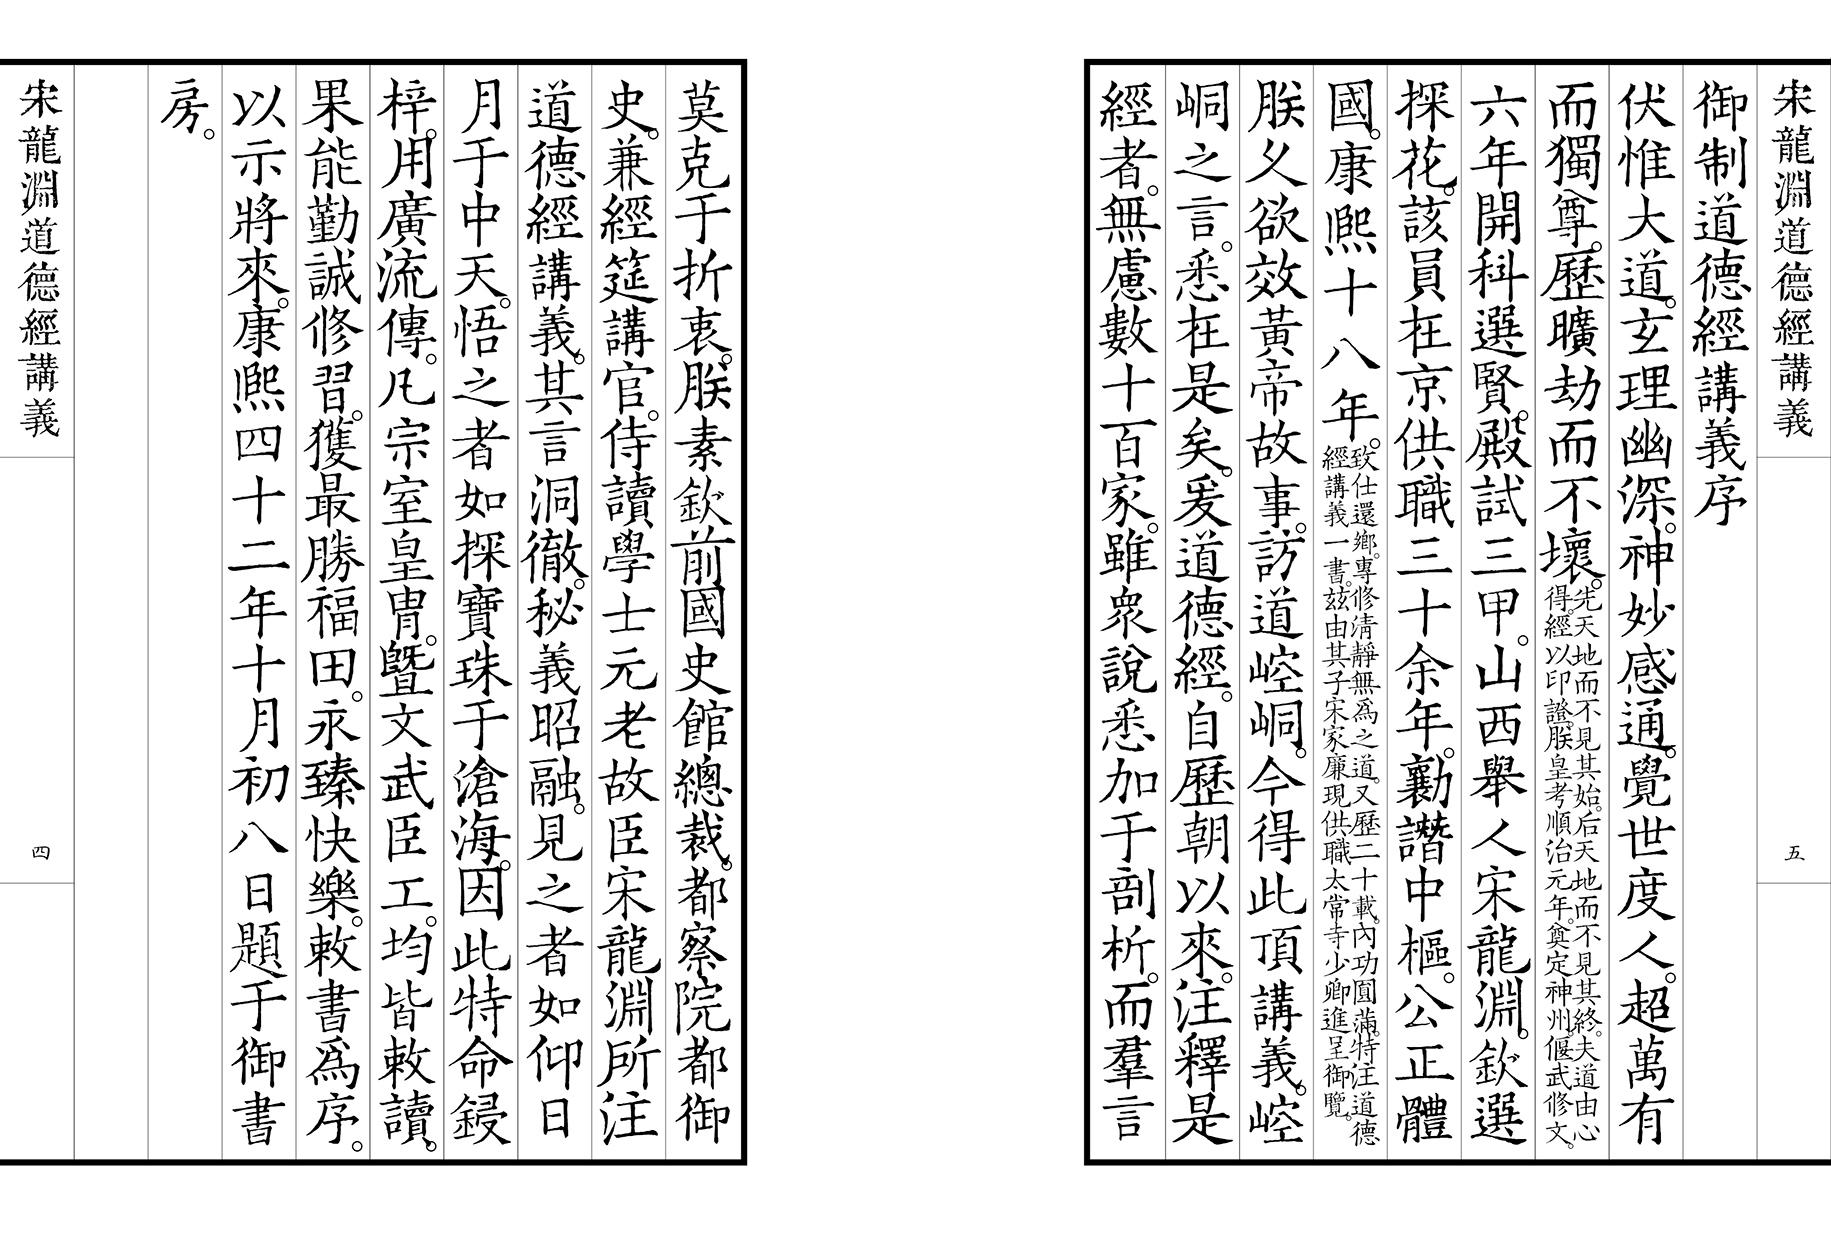 宋龍淵道德經講義
五
御制道德經講義序
伏惟大道。玄理幽深。神妙感通。覺世度人。超萬有
而獨尊。歷曠劫而不壞。先天地而不見其始。后天地而不見其終。夫道由心
得。經以印證。朕皇考順治元年。奠定神州。偃武修文。
六年開科選賢。殿試三甲。山西舉人宋龍淵。欽選
探花。該員在京供職三十余年。勷讚中樞。公正體
國。康熙十八年。致仕還鄉。專修清靜無為之道。又歷二十載。內功圓滿。特注道德
經講義一書。茲由其子宋家廉現供職太常寺少卿進呈御覽。
朕久欲效黃帝故事。訪道崆峒。今得此頂講義。崆
峒之言。悉在是矣。爰道德經。自歷朝以來。注釋是
經者。無慮數十百家。雖眾說悉加于剖析。而羣言
莫克于折衷。朕素欽前國史館總裁。都察院都御
史。兼經筵講官。侍讀學士元老故臣宋龍淵所注
道德經講義。其言洞徹。秘義昭融。見之者如仰日
月于中天。悟之者如探寶珠于滄海。因此特命鋟
梓。用廣流傳。凡宗室皇冑。暨文武臣工。均皆敕讀。
果能勤誠修習。獲最勝福田。永臻快樂。敕書為序。
以示將來。康熙四十二年十月初八日題于御書
房。
宋龍淵道德經講義
四